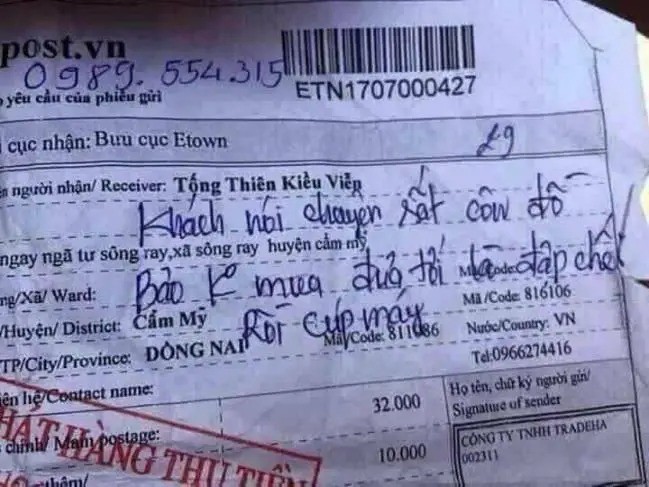 post.vn
0989.554.315
ETN1707000427
yêu cầu của phiếu gửi
cục nhận: Bưu cục Etown
người nhận/ Receiver: Tống Thiên Kiều Viễn
Khách nói chuyện sất côn đồ
ngay ngã tư sông ray,xã sông ray huyện cẩm mỹ
Bảo K mua đưa tới là đập chết
ng/Xã/ Ward: Mã/Code:
Mã /Code: 816106
/Huyện/ District: Cẩm Mỹ
Rồi cúp máy
TP/City/Province: ĐỒNG NAI Mã/Code: 811086 Nước/Country: VN
Tel:0966274416
iên hệ/Contact name:
Họ tên, chữ ký người gửi/
Signature of sender
32.000
PHÁT HÀNG THU TIỀN
chính/ Main postage:
10.000
CÔNG TY TNHH TRADEHA
002311